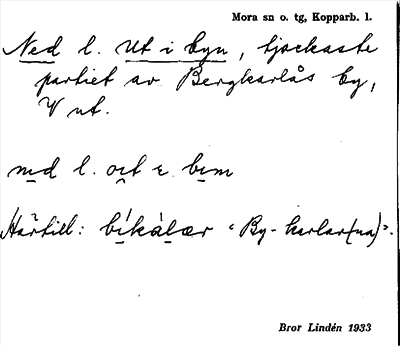 Mora sn o. tg, Kopparb. l.
Ned l. Ut i byn, tjockaste
partiet av Bergkarlås by,
V ut.
nıd l. ot ı bım
Härtill: bíkàlær "By-karlar(na)".
Bror Lindén 1933